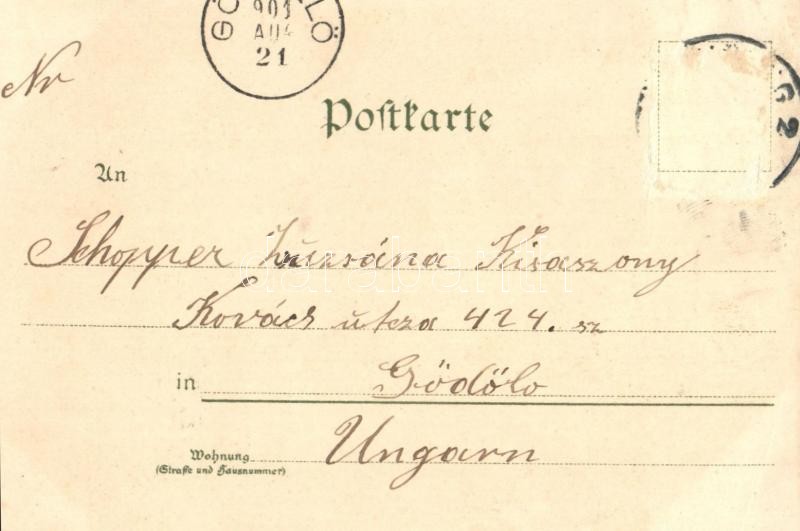 GÖ LLŐ
901
AUG
21
G 2
Nr
Postkarte
An
Schopper Zsuzsána Kisaszony
Kovács útcza 424. sz
in Gödölo
Ungarn
Wohnung
(Straße und Hausnummer)
darabanth